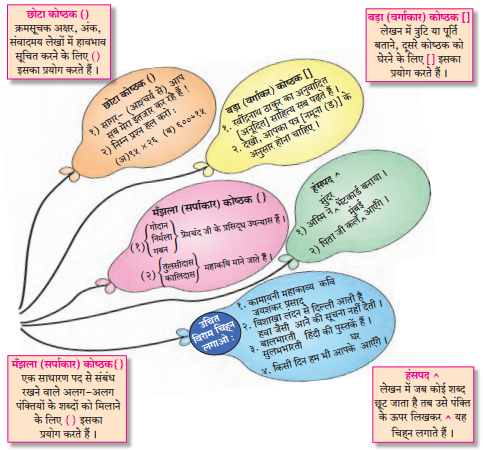 छोटा कोष्ठक ()
क्रमसूचक अक्षर, अंक,
संवादमय लेखों में हावभाव
सूचित करने के लिए ()
इसका प्रयोग करते हैं ।
बड़ा (वर्गाकार) कोष्ठक []
लेखन में त्रुटि या पूर्ति
बताने, दूसरे कोष्ठक को
घेरने के लिए [] इसका
प्रयोग करते हैं ।
छोटा कोष्ठक ()
१) सागर- (आश्चर्य से) आप
सब मेरा इंतजार कर रहे हैं !
२) निम्न प्रश्न हल करो :
(अ)१५ × २६ (ब) ६००÷१५
बड़ा (वर्गाकार) कोष्ठक []
१. रवींद्रनाथ ठाकुर का अनुवादित
[अनूदित] साहित्य सब पढ़ते हैं ।
२. देखो, आपका पत्र [नमूना (ड)] के
अनुसार होना चाहिए ।
मँझला (सर्पाकार) कोष्ठक {}
(१) {गोदान
निर्मला
गबन} प्रेमचंद जी के प्रसिद्ध उपन्यास हैं ।
(२) {तुलसीदास
कालिदास} महाकवि माने जाते हैं ।
हंसपद ^
सुंदर
१) अस्मि ने ^ भेंटकार्ड बनाया ।
मुंबई
२) पिता जी कल ^ आएँगे ।
उचित
विराम चिह्न
लगाओ :
१. कामायनी महाकाव्य कवि
जयशंकर प्रसाद
२. विशाखा लंदन से दिल्ली आती है
हवा जैसी आने की सूचना नहीं देती ।
३. बालभारती
सुलभभारती हिंदी की पुस्तकें हैं ।
घर
४. किसी दिन हम भी आपके आएँगे ।
मँझला (सर्पाकार) कोष्ठक{}
एक साधारण पद से संबंध
रखने वाले अलग-अलग
पंक्तियों के शब्दों को मिलाने
के लिए { } इसका
प्रयोग करते हैं ।
हंसपद ^
लेखन में जब कोई शब्द
छूट जाता है तब उसे पंक्ति
के ऊपर लिखकर ^ यह
चिह्न लगाते हैं ।